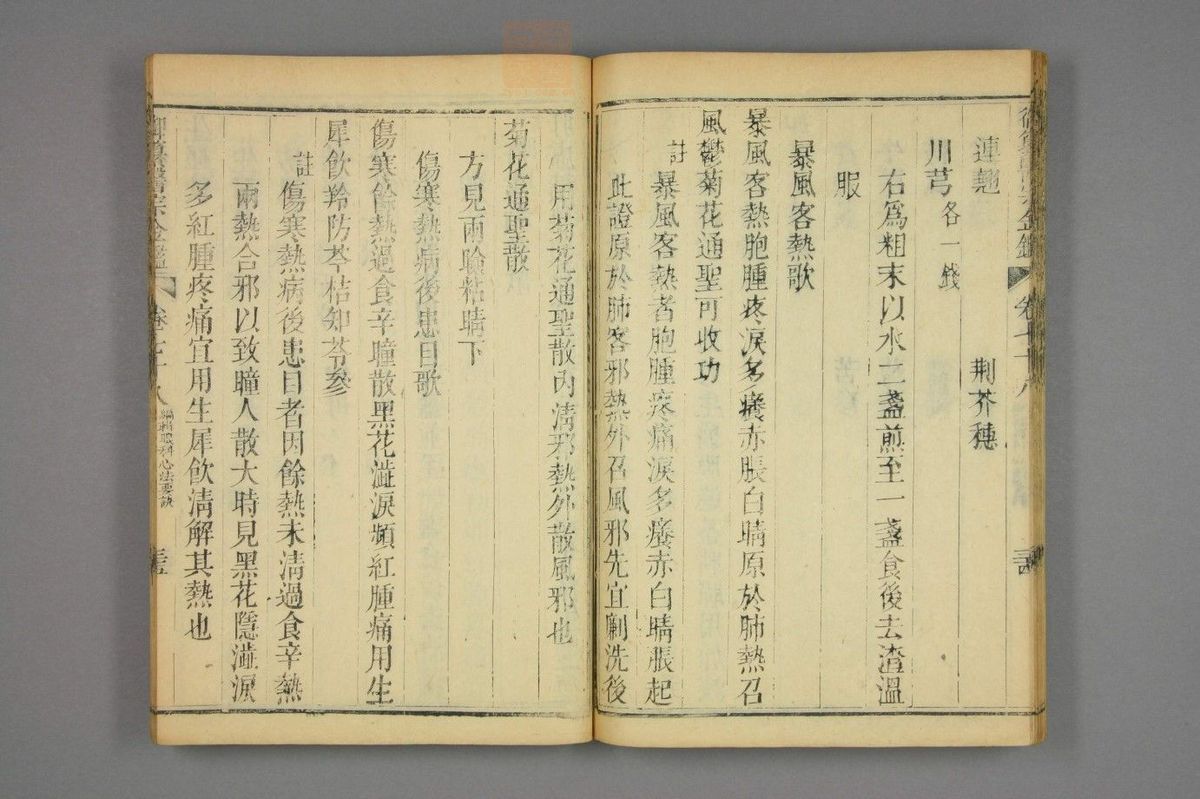 連翹
川芎各一錢　荆芥穗
右爲粗末以水二盞煎至一盞食後去渣溫
服
暴風客熱歌
暴風客熱胞腫疼淚多癢赤脹白睛原於肺熱召
風鬱菊花通聖可收功
註暴風客熱者胞腫疼痛淚多癢赤白睛脹起
此證原於肺客邪熱外召風邪先宜劆洗後
用菊花通聖散內淸邪熱外散風邪也
菊花通聖散
方見兩瞼粘睛下
傷寒熱病後患目歌
傷寒餘熱過食辛瞳散黑花澁淚頻紅腫痛用生
犀飮羚防芩桔知苓參
註傷寒熱病後患目者因餘熱未淸過食辛熱
兩熱合邪以致瞳人散大時見黑花隱澁淚
多紅腫疼痛宜用生犀飮淸解其熱也
御纂醫宗金鑑　卷七十八　編輯眼科心法要訣